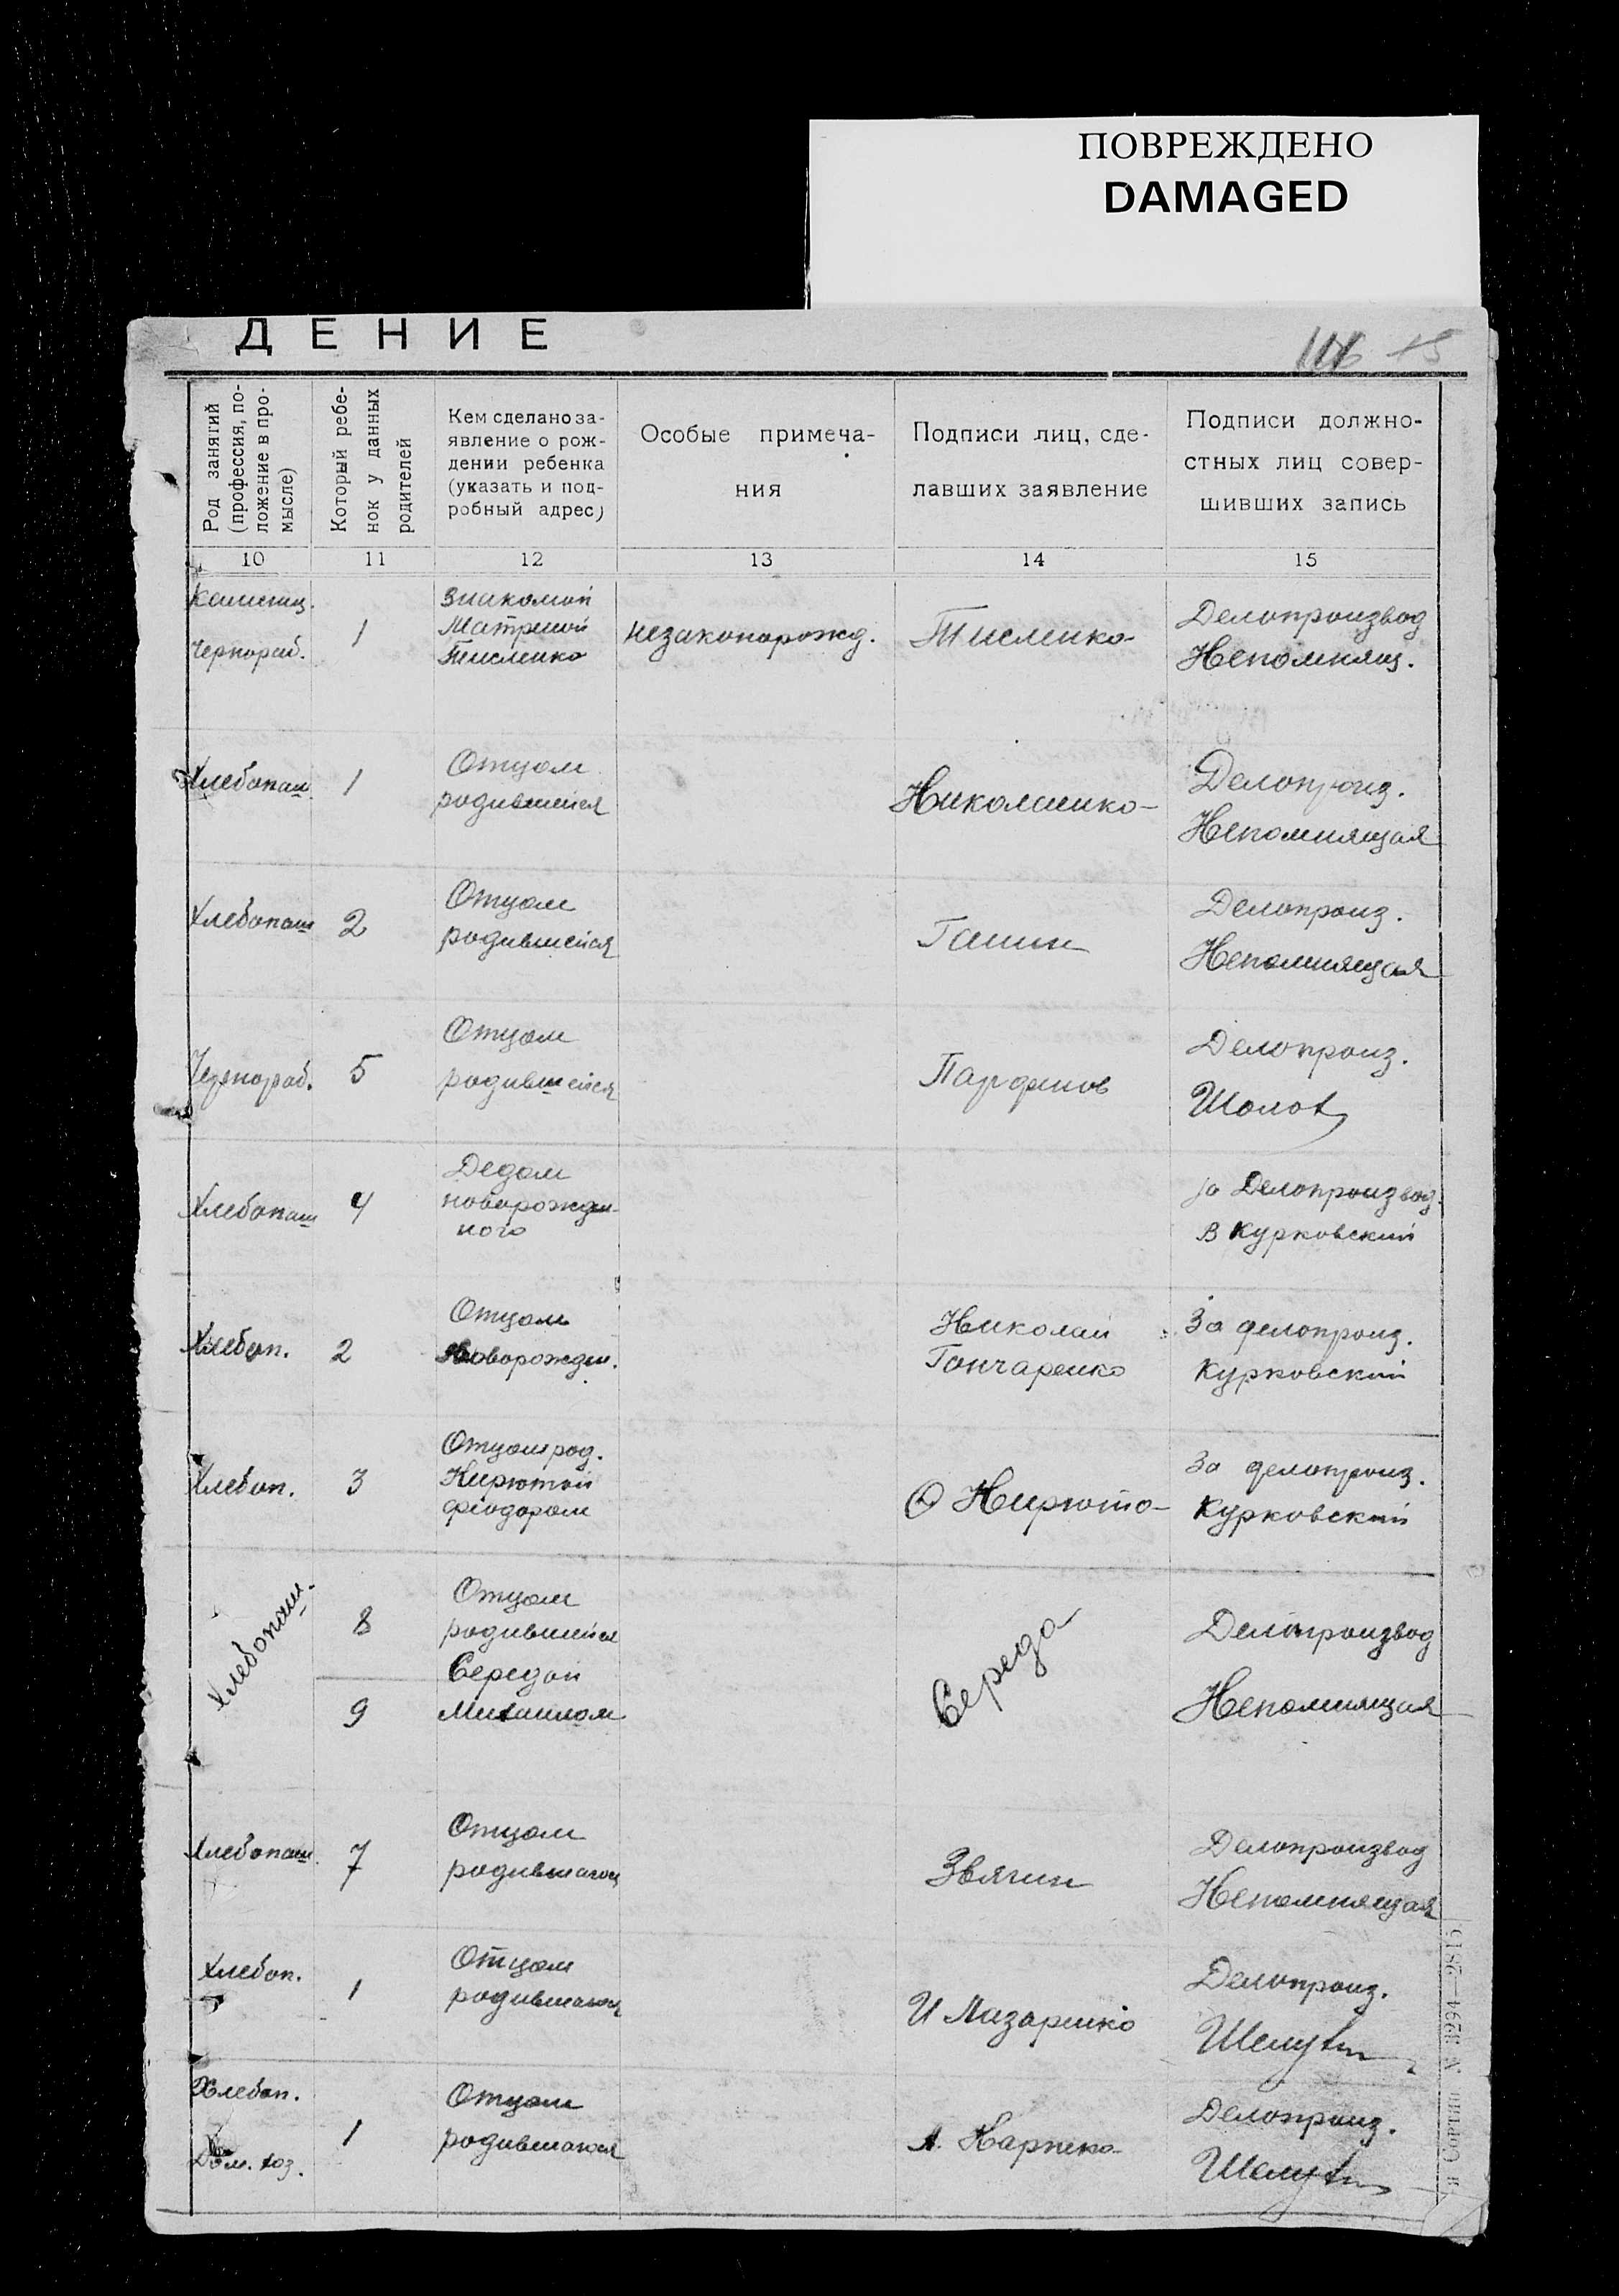 ПОВРЕЖДЕНО
DAMAGED
ДЕНИЕ
15
Род занятий
(профессия, по-
ложение в про-
мысле)
Который ребе-
нок у данных
родителей
Кем сделано за-
явление о рож-
дении ребенка
(указать и под-
робный адрес)
Особые примеча-
ния
Подписи лиц, сде-
лавших заявление
Подписи должно-
стных лиц совер-
шивших запись
10 11 12 13 14 15
Чернораб.
1
Знакомой
Матреной
Тисленко
незаконорожд.
Тисленко
Делопроизвод
Непомнящ.
Хлебопаш
1
Отцом
родившейся
Николаенко
Делопроиз.
Непомнящая
Хлебопаш
2
Отцом
родившейся
Ганин
Делопроиз.
Непомнящая
Чернораб.
5
Отцом
родившейся
Парфенов
Делопроиз.
Хлебопаш
4
Дедом
новорожден-
ного
За Делопроизвод.
В Курковский
Хлебоп.
2
Отцом
новорожден.
Николай
Гончаренко
За делопроиз.
Курковский
Хлебоп.
3
Отцом род.
Кирютой
Феодором
Ф Кирюто
За делопроиз.
Курковский
Хлебопаш.
8
9
Отцом
родившейся
Середой
Михаилом
Середа
Делопроизвод
Непомнящая
Хлебопаш
7
Отцом
родившагося
Звягин
Делопроизвод
Непомнящая
Хлебоп.
1
Отцом
родившагося
И Лазаренко
Делопроиз.
Хлебоп.
Дом. хоз.
1
Отцом
родившагося
Делопроиз.